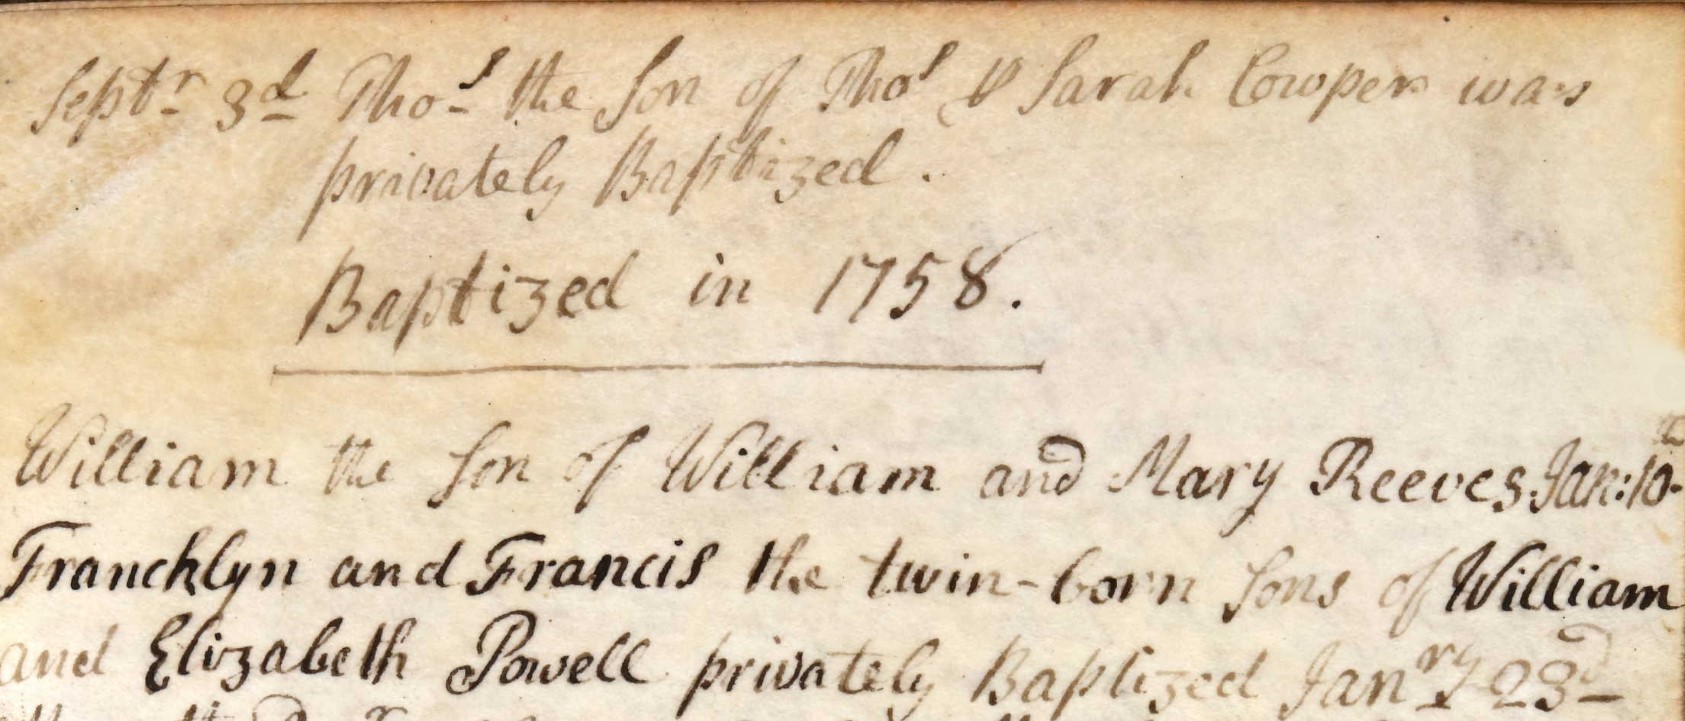 Septr. 3d Thos. the Son of Thos & Sarah Cowper was
privately Baptized.
Baptized in 1758.
William the Son of William and Mary Reeves Jan: 10th
Francklyn and Francis the twin-born Sons of William
and Elizabeth Powell privately Baptized Janry 23d